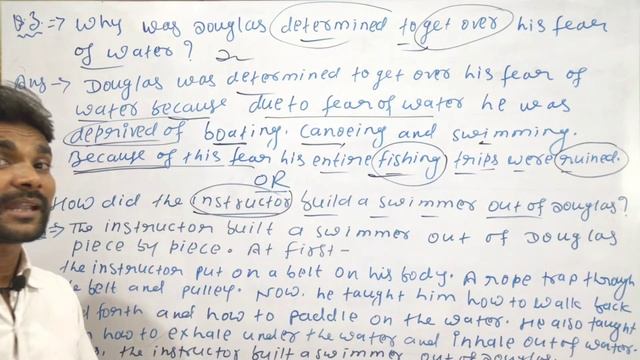 Q.3 → Why was Douglas determined to get over his fear
of water?
Ans → Douglas was determined to get over his fear of
water because due to fear of water he was
deprived of boating. Canoeing and swimming.
Because of this fear his entire fishing trips were ruined.
OR
How did the instructor build a swimmer out of Douglas?
→ The instructor built a swimmer out of Douglas
piece by piece. At first-
the instructor put on a belt on his body. A rope trap through
belt and pulley. Now, he taught him how to walk back
forth and how to paddle on the water. He also taught
how to exhale under the water and inhale out of water
the instructor built a swimmer out of Douglas.